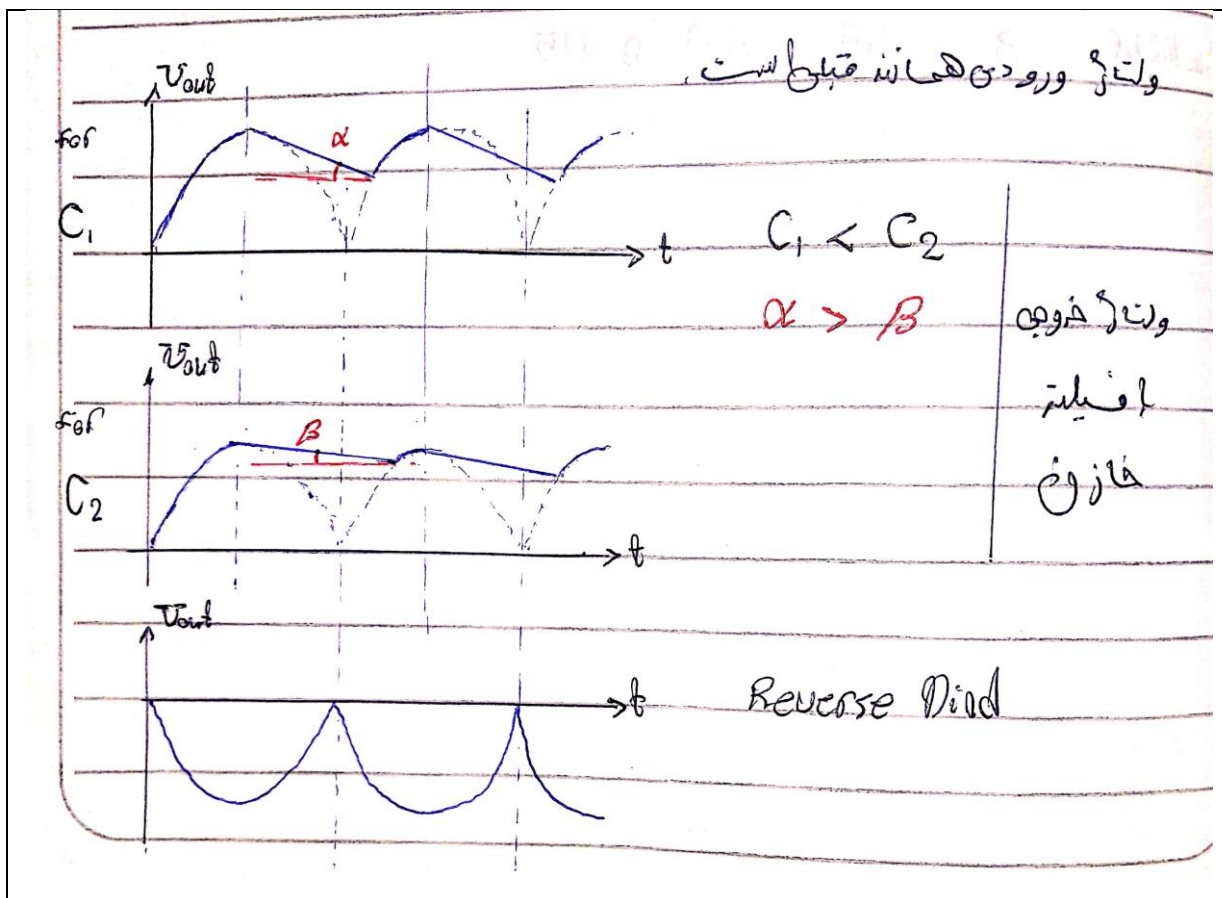 ولتاژ ورودی همانند قبلی است.
Vout
for
C₁
α
t
C₁ < C₂
α > β
ولتاژ خروجی
با فیلتر
خازن
Vout
for
C₂
β
t
Vout
t
Reverse Diod